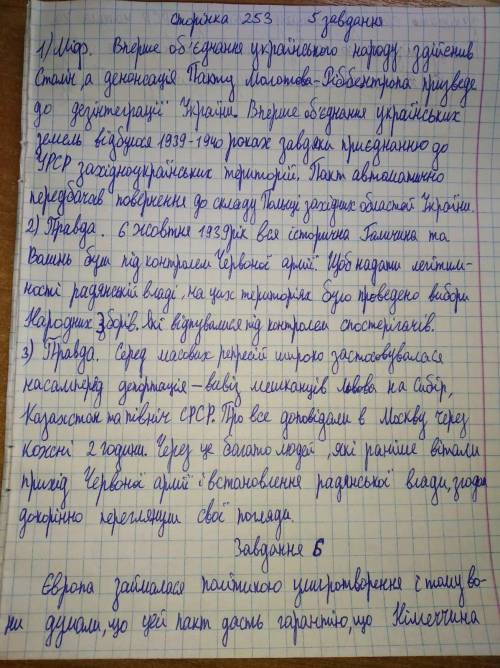 сторінка 253 5 завдання
1) Міф. Вперше об'єднання українського народу здійснив
Сталін, а денонсація Пакту Молотова-Ріббентропа призведе
до дезінтеграції України. Вперше об'єднання українських
земель відбулося 1939-1940 роках завдяки приєднанню до
УРСР західноукраїнських територій. Пакт автоматично
передбачав повернення до складу Польщі західних областей України.
2) Правда. 6 жовтня 1939рік вся історична Галичина та
Волинь були під контролем Червоної армії. Щоб надати легітим-
ності радянській владі, на цих територіях було проведено вибори
Народних Зборів. Які відбувалися під контролем спостерігачів.
3) Правда. Серед масових репресій широко застосовувалася
насамперед депортація – вивіз мешканців Львова на Сибір,
Казахстан та північ СРСР. Про все доповідали в Москву через
кожні 2 години. Через це багато людей, які раніше вітали
прихід Червоної армії і встановлення радянської влади, згодом
докорінно переглянули свої погляди.
Завдання 6
Європа займалася політикою умиротворення і тому во-
ни думали, що цей пакт дасть гарантію, що Німеччина